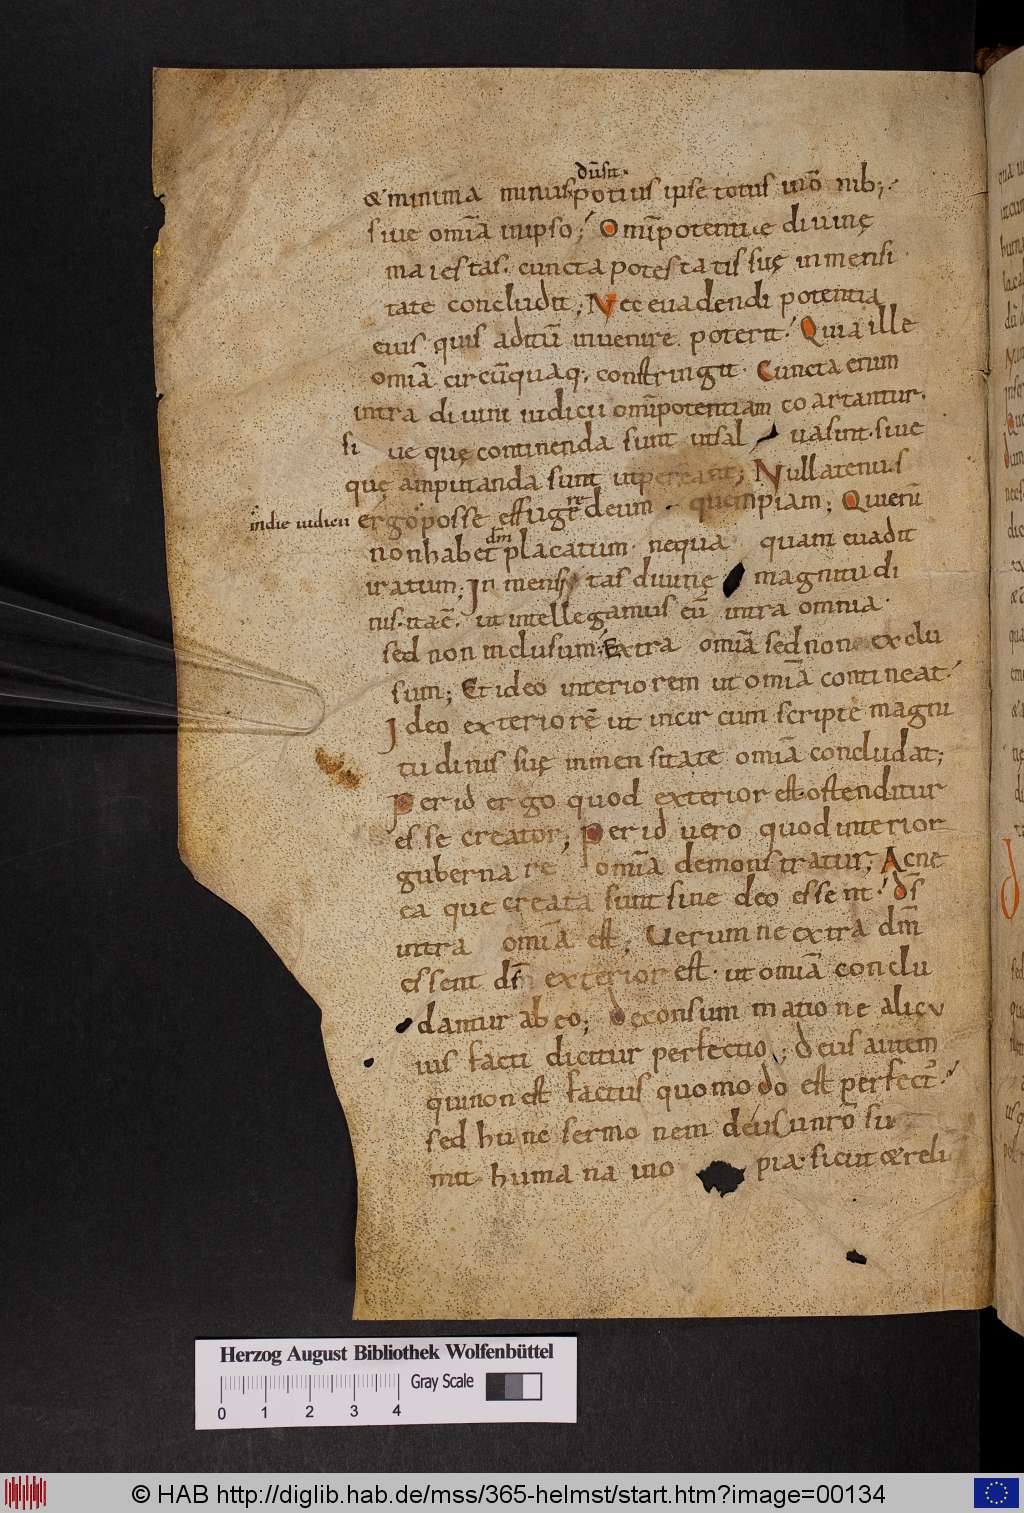 dū sit.
& minima minus. potius ipse totus in uno. nib;.
siue om̅ia in ipso; Om̅ipotentiae diuinę
maiestas. cuncta potestatis suę inmensi
tate concludit; Nec euadendi potentia
eius quis aditū inuenire poterit. Quia ille
om̅ia circūquaq; constringit. Cuncta enim
intra diuini iudicii om̅ipotentiam coartantur.
si ue quę continenda sunt ut sal ua sint. siue
quę amputanda sunt ut pereant; Nullatenus
in die iudicii ergo posse effugere deum quempiam; Qui enī
dm̅
non habet placatum. nequa quam euadit
iratum; Inmensi tas diuinę magnitudi
nis. ita ē. ut intellegamus eū intra omnia.
sed non inclusum; Extra om̅ia sed non exclu
sum; Et ideo interiorem ut om̅ia contineat.
Ideo exteriorē ut incircum scriptę magni
tudinis suę inmensitate om̅ia concludat;
Per id ergo quod exterior est. ostenditur
esse creator; Per id uero quod interior
gubernare om̅ia demonstratur; Ac ne
ea que creata sunt sine deo essent. ds̅
intra om̅ia est; Uerum ne extra dm̅
essent ds̅ exterior est. ut om̅ia conclu
dantur ab eo; De consummatione alicu
ius facti dicitur perfectio; Deus autem
qui non est factus quomodo est perfect'.
sed hunc sermonem de usu nr̅o su
mit humana ino pia. sicut & reli
Herzog August Bibliothek Wolfenbüttel
Gray Scale
0 1 2 3 4
© HAB http://diglib.hab.de/mss/365-helmst/start.htm?image=00134